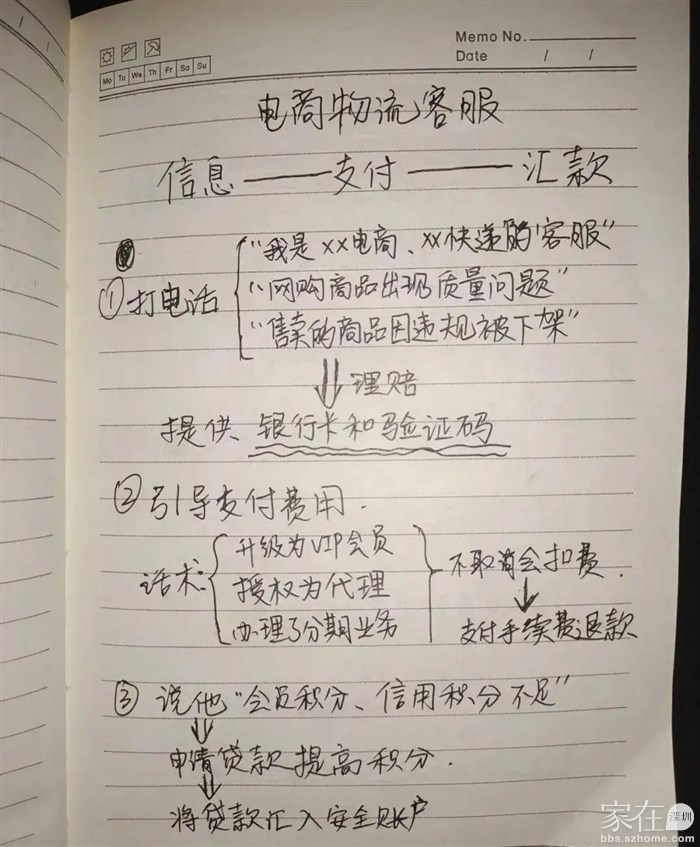 Memo No.
Mo Tu We Th Fr Sa Su
Date / /
电商物流客服
信息——支付——汇款
①打电话
"我是xx电商、xx快递的客服"
"网购商品出现质量问题"
"售卖的商品因违规被下架"
理赔
提供、银行卡和验证码
②引导支付费用.
话术:
升级为VIP会员
授权为代理
办理了分期业务
不取消会扣费.
支付手续费退款
③说他"会员积分、信用积分不足"
申请贷款提高积分.
将贷款汇入安全账户
家在深圳
bbs.szhome.com